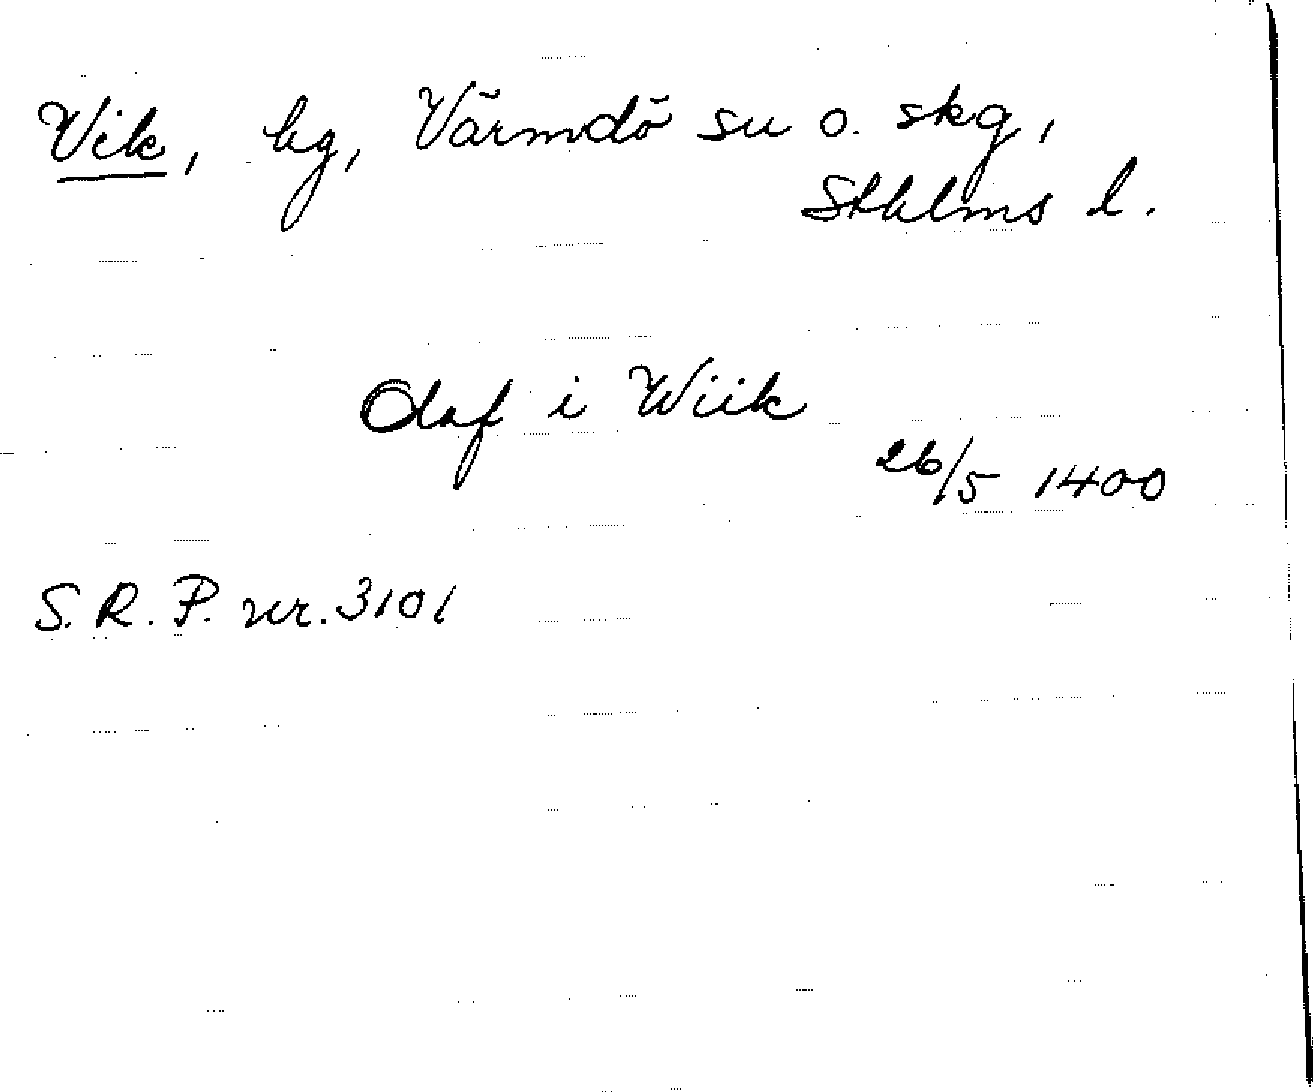 Vik, by, Värmdö sn o. skg,
Sthlms l.
Olaf i Wiik
26/5 1400
S.R.P. nr. 3101